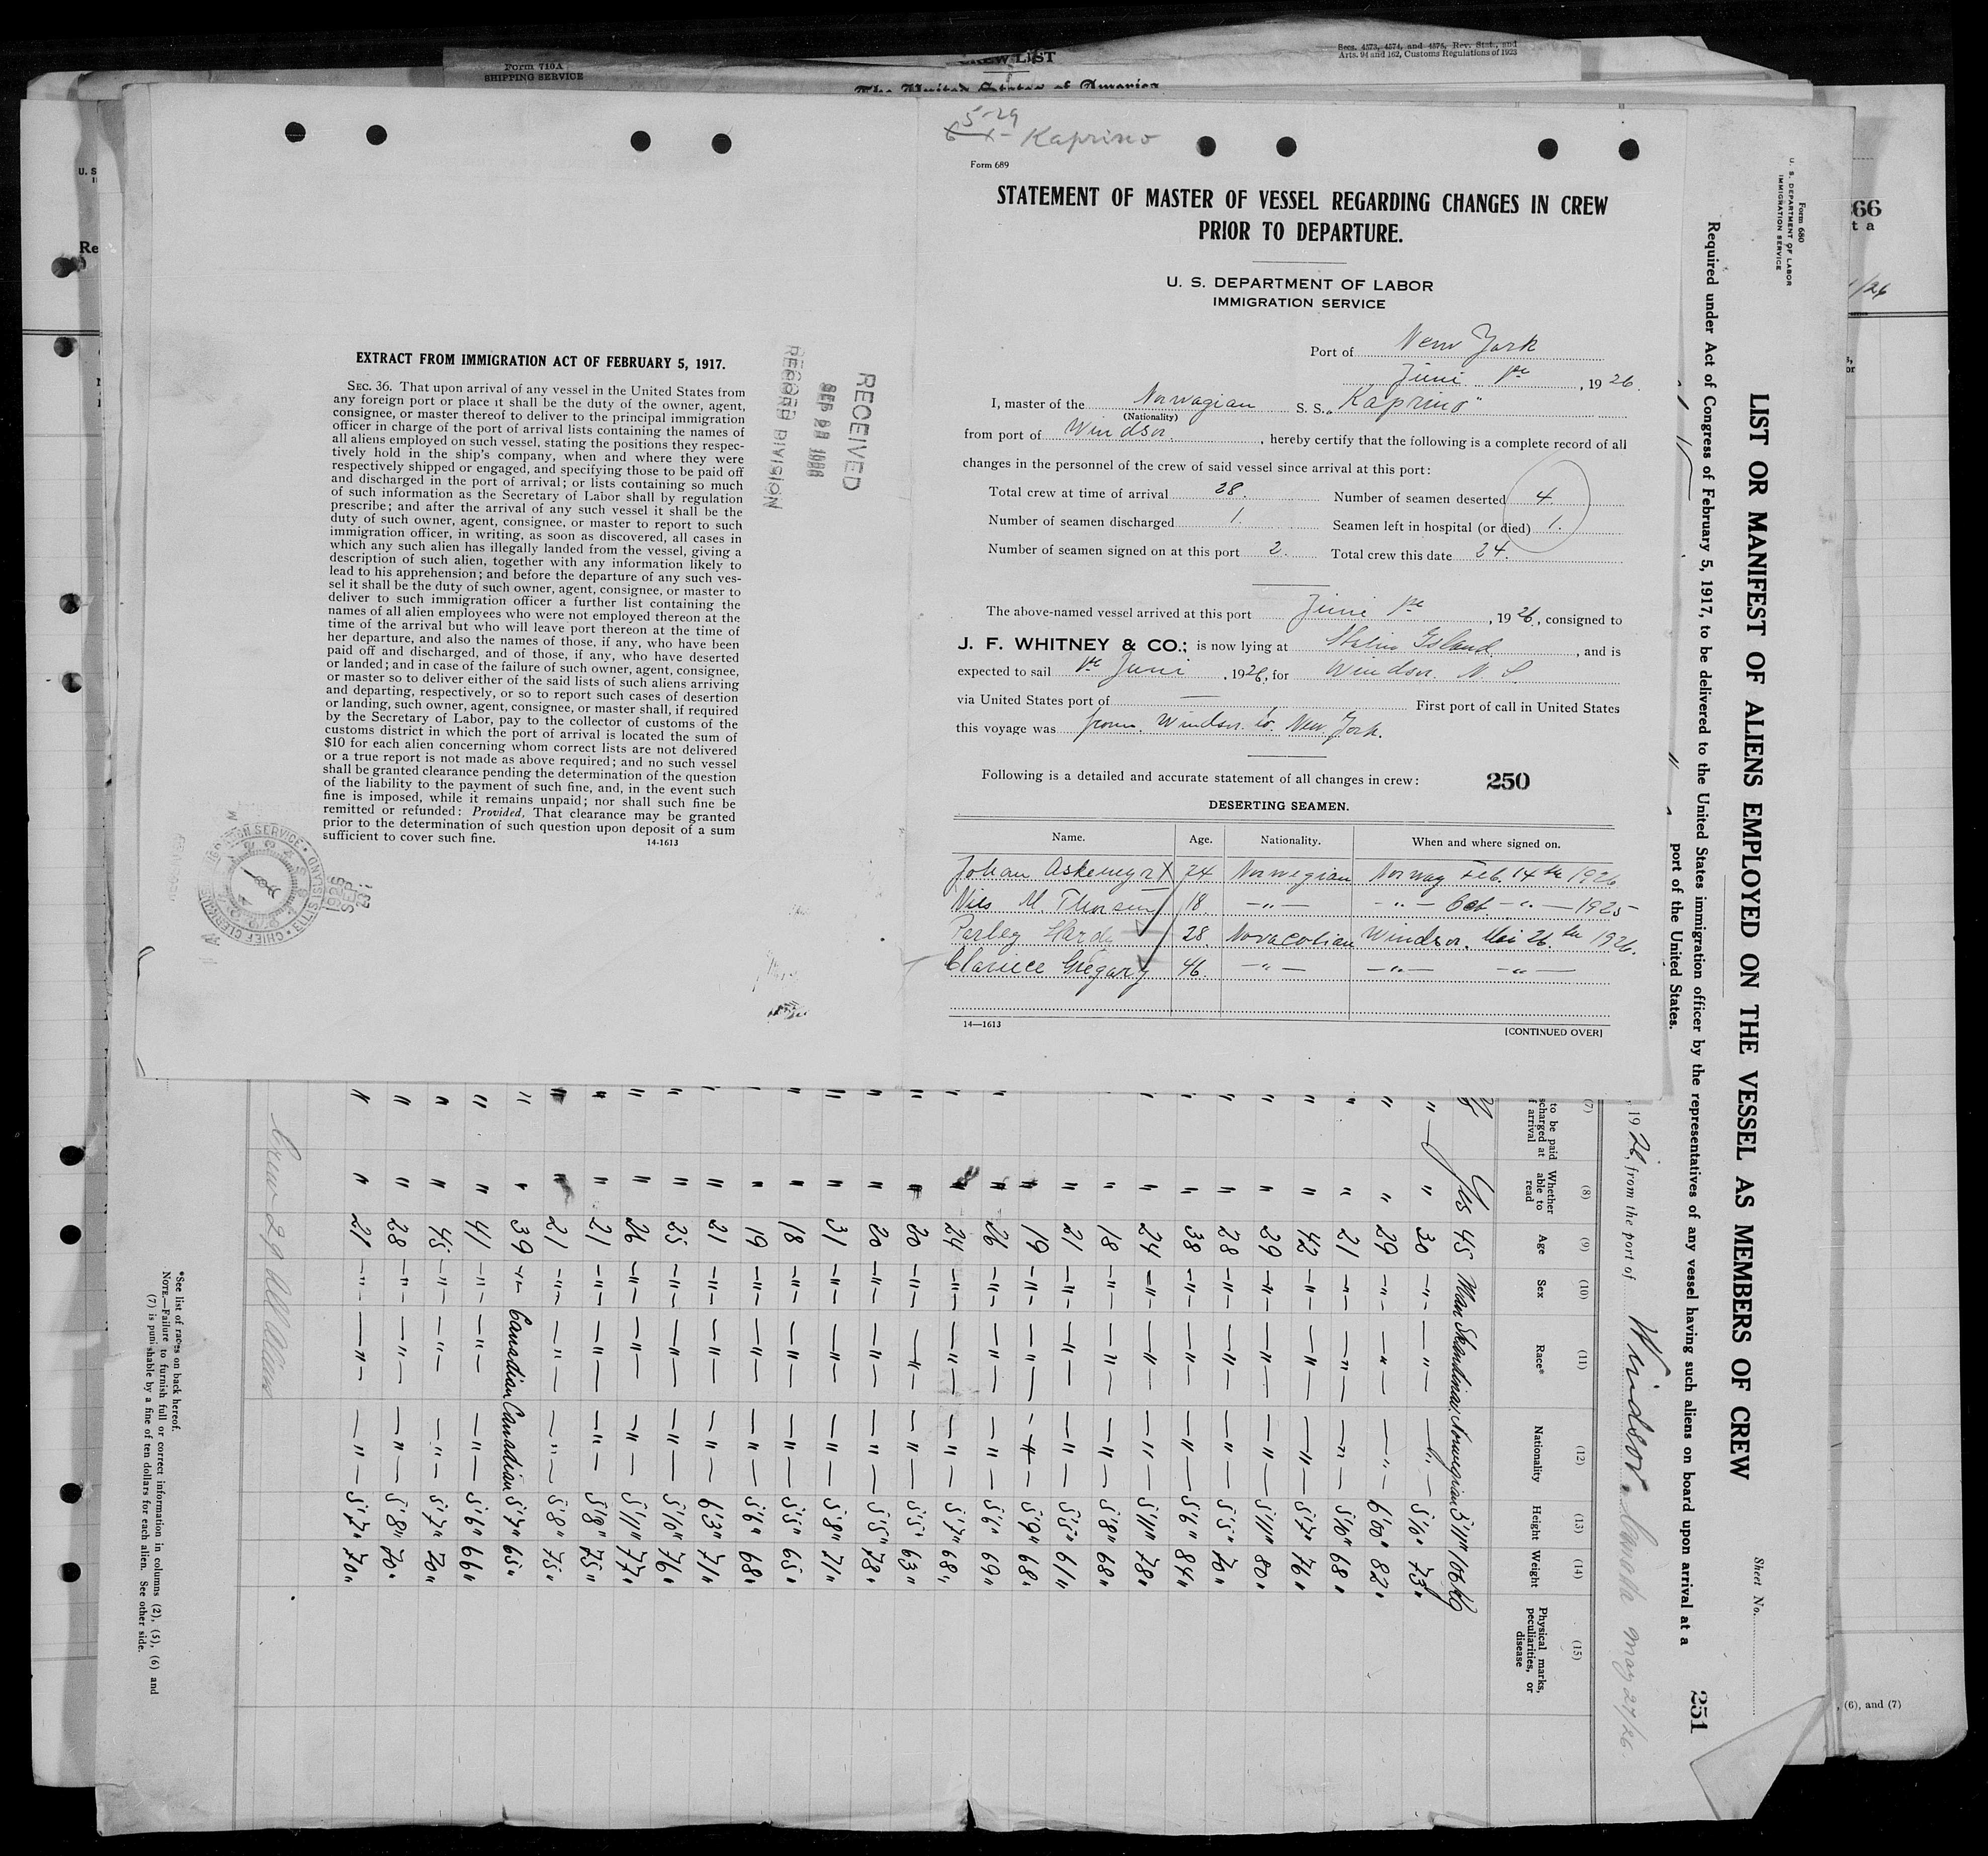 Form 710A
SHIPPING SERVICE
CREW LIST
The United States of America
Secs. 4573, 4574, and 4576, Rev. Stat., and
Arts. 94 and 162, Customs Regulations of 1923
EXTRACT FROM IMMIGRATION ACT OF FEBRUARY 5, 1917.
SEC. 36. That upon arrival of any vessel in the United States from
any foreign port or place it shall be the duty of the owner, agent,
consignee, or master thereof to deliver to the principal immigration
officer in charge of the port of arrival lists containing the names of
all aliens employed on such vessel, stating the positions they respec-
tively hold in the ship's company, when and where they were
respectively shipped or engaged, and specifying those to be paid off
and discharged in the port of arrival; or lists containing so much
of such information as the Secretary of Labor shall by regulation
prescribe; and after the arrival of any such vessel it shall be the
duty of such owner, agent, consignee, or master to report to such
immigration officer, in writing, as soon as discovered, all cases in
which any such alien has illegally landed from the vessel, giving a
description of such alien, together with any information likely to
lead to his apprehension; and before the departure of any such ves-
sel it shall be the duty of such owner, agent, consignee, or master to
deliver to such immigration officer a further list containing the
names of all alien employees who were not employed thereon at the
time of the arrival but who will leave port thereon at the time of
her departure, and also the names of those, if any, who have been
paid off and discharged, and of those, if any, who have deserted
or landed; and in case of the failure of such owner, agent, consignee,
or master so to deliver either of the said lists of such aliens arriving
and departing, respectively, or so to report such cases of desertion
or landing, such owner, agent, consignee, or master shall, if required
by the Secretary of Labor, pay to the collector of customs of the
customs district in which the port of arrival is located the sum of
$10 for each alien concerning whom correct lists are not delivered
or a true report is not made as above required; and no such vessel
shall be granted clearance pending the determination of the question
of the liability to the payment of such fine, and, in the event such
fine is imposed, while it remains unpaid; nor shall such fine be
remitted or refunded: Provided, That clearance may be granted
prior to the determination of such question upon deposit of a sum
sufficient to cover such fine.
14-1613
RECEIVED
RECORD DIVISION
5-29
Kaprino
Form 689
STATEMENT OF MASTER OF VESSEL REGARDING CHANGES IN CREW
PRIOR TO DEPARTURE.
U. S. DEPARTMENT OF LABOR
IMMIGRATION SERVICE
Port of New York
Juni 1ste, 1926.
I, master of the Norwagian S. S. "Kaprino"
(Nationality)
from port of Windsor, hereby certify that the following is a complete record of all
changes in the personnel of the crew of said vessel since arrival at this port:
Total crew at time of arrival 28. Number of seamen deserted 4.
Number of seamen discharged 1. Seamen left in hospital (or died) 1.
Number of seamen signed on at this port 2. Total crew this date 24.
The above-named vessel arrived at this port Juni 1ste, 1926, consigned to
J. F. WHITNEY & CO.; is now lying at Island, and is
expected to sail 1ste Juni, 1926, for Windsor. N. S.
via United States port of — First port of call in United States
this voyage was from Windsor to New York.
Following is a detailed and accurate statement of all changes in crew: 250
DESERTING SEAMEN.
Name. Age. Nationality. When and where signed on.
Johan Askemyr X 24 Norwegian Norway Feb. 14th 1926
Nils M. Thorsen 18. —"— —"— Oct —"— 1925
Perley Hardy 28. Novacotian Windsor. Mai 26th 1926.
Clariece Gregary 46. —"— —"— —"—
14—1613
[CONTINUED OVER]
Form 680
U. S. DEPARTMENT OF LABOR
IMMIGRATION SERVICE
LIST OR MANIFEST OF ALIENS EMPLOYED ON THE VESSEL AS MEMBERS OF CREW
Sheet No.
Required under Act of Congress of February 5, 1917, to be delivered to the United States immigration officer by the representatives of any vessel having such aliens on board upon arrival at a
port of the United States.
251
, 1926, from the port of Windsor. Canada May 27/26.
(7) (8) (9) (10) (11) (12) (13) (14) (15)
Whether able to read Age Sex Race* Nationality Height Weight Physical marks, peculiarities, or disease
Yes 45 Man Skandinav. Norwegian 5'11" 106 Kg
" " 30 —"— —"— —"— 5'10" 73"
" " 29 —"— —"— —"— 6'00" 82"
" " 21 —"— —"— —"— 5'10" 68"
" " 42 —"— —"— —"— 5'7" 76"
" " 29 —"— —"— —"— 5'11" 80"
" " 28 —"— —"— —"— 5'5" 70"
" " 38 —"— —"— —"— 5'6" 84"
" " 24 —"— —"— —"— 5'11" 78"
" " 18 —"— —"— —"— 5'8" 68"
" " 21 —"— —"— —"— 5'5" 61"
" " 19 —"— —"— —"— 5'9" 68"
" " 26 —"— —"— —"— 5'6" 69"
" " 24 —"— —"— —"— 5'7" 68"
" " 20 —"— —"— —"— 5'5" 63"
" " 20 —"— —"— —"— 5'5" 78"
" " 31 —"— —"— —"— 5'8" 71"
" " 18 —"— —"— —"— 5'5" 65"
" " 19 —"— —"— —"— 5'6" 68"
" " 21 —"— —"— —"— 6'3" 71"
" " 25 —"— —"— —"— 5'10" 76"
" " 26 —"— —"— —"— 5'11" 77"
" " 21 —"— —"— —"— 5'8" 75"
" " 21 —"— —"— —"— 5'8" 75"
" " 39 —"— Canadian Canadian 5'7" 65"
" " 41 —"— —"— —"— 5'6" 66"
" " 45 —"— —"— —"— 5'7" 70"
" " 28 —"— —"— —"— 5'8" 70"
" " 21 —"— —"— —"— 5'7" 70"
Crew 29 All Aliens
*See list of races on back hereof.
NOTE.—Failure to furnish full or correct information in columns (2), (5), (6) and
(7) is punishable by a fine of ten dollars for each alien. See other side.
66
t a
, (6), and (7)